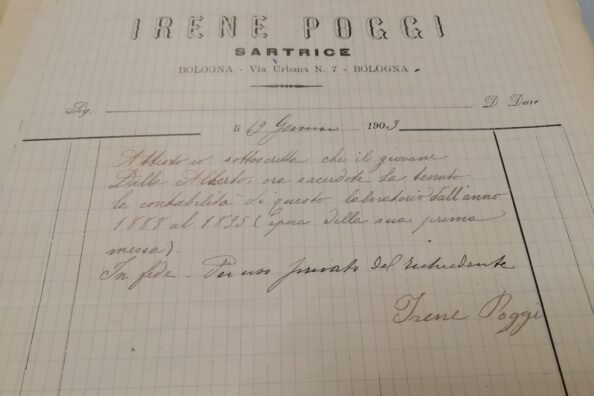 IRENE POGGI
SARTRICE
BOLOGNA - Via Urbana N. 7 - BOLOGNA
Sig. D Dare
li 19 Gennaio 1903
Attesto io sottoscritta che il giovane
Dalle Alberto, ora sacerdote ha tenuto
la contabilità di questo laboratorio dall'anno
1888 al 1895 (epoca della sua prima
messa).
In fede. Per uso privato del richiedente
Irene Poggi